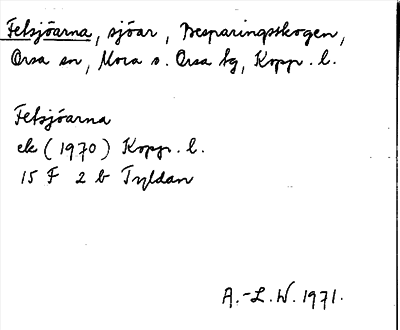 Felsjöarna, sjöar, Besparingsskogen,
Orsa sn, Mora o. Orsa tg, Kopp. l.
Felsjöarna
ek (1970) Kopp. l.
15 F 2 b Tyldan
A.-L.W. 1971.